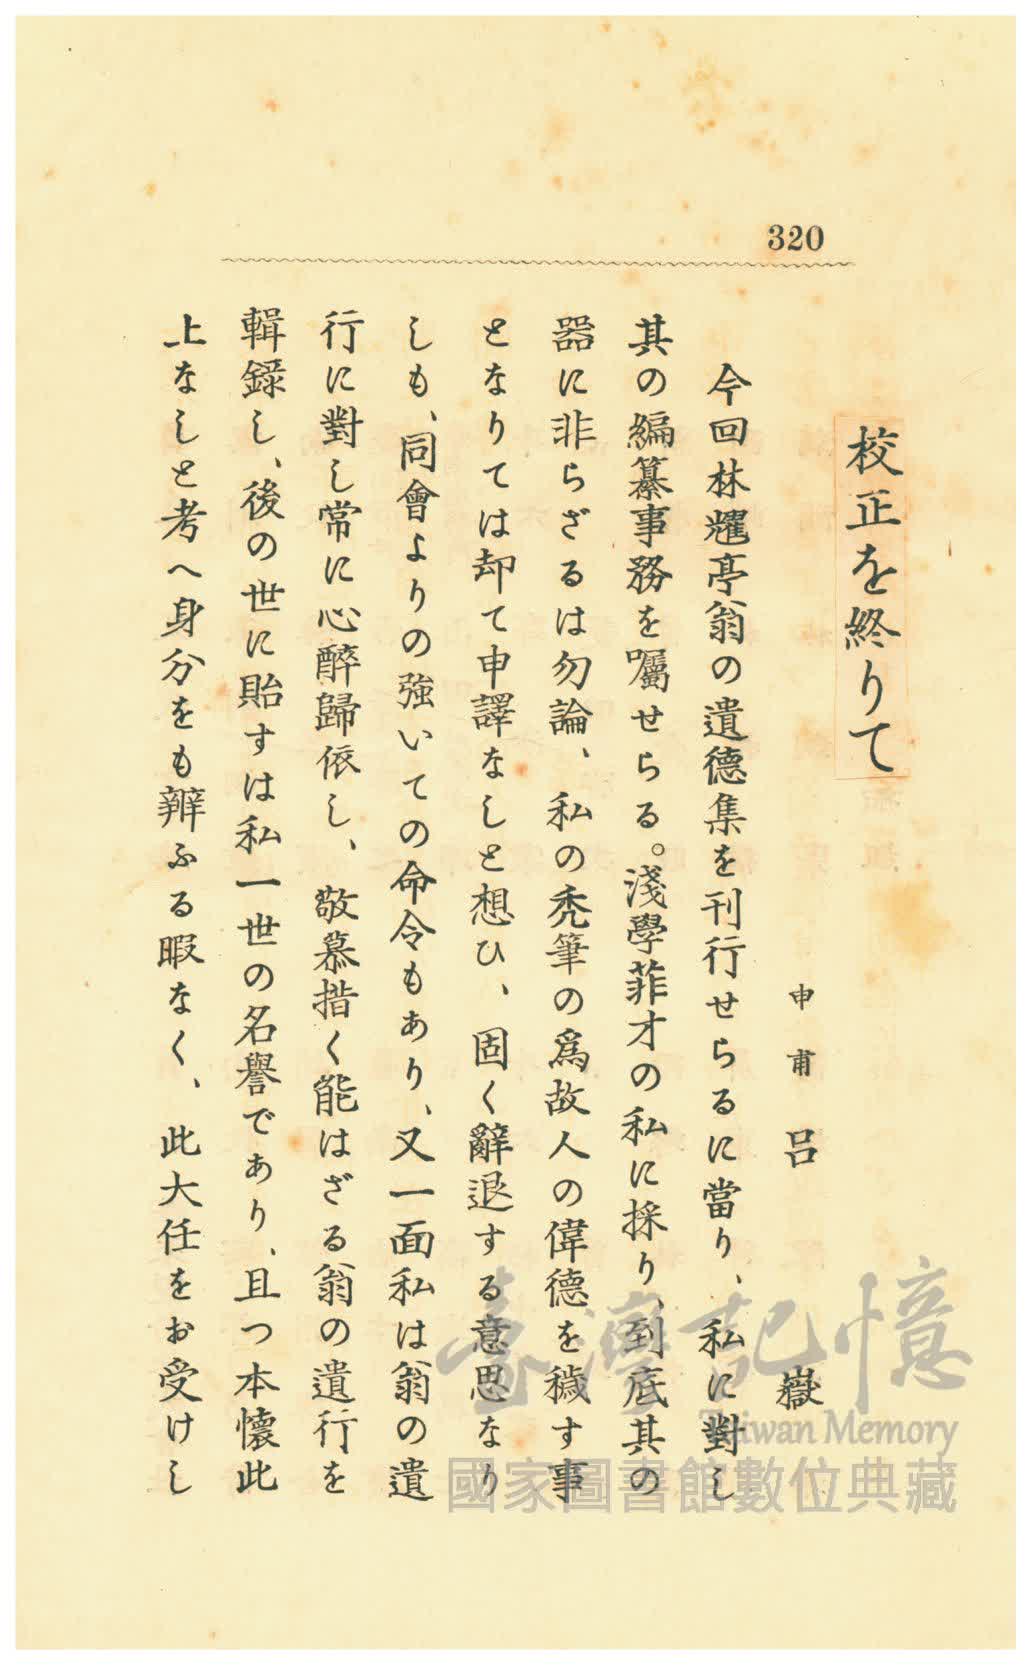 320
校正を終りて
申甫 呂嶽
今回林耀亭翁の遺德集を刊行せらるに當り、私に對し
其の編纂事務を囑せらる。淺學菲才の私に採り、到底其の
器に非らざるは勿論、私の禿筆の爲故人の偉德を穢す事
となりては却て申譯なしと想ひ、固く辭退する意思なり
しも、同會よりの強いての命令もあり、又一面私は翁の遺
行に對し常に心醉歸依し、敬慕措く能はざる翁の遺行を
輯錄し、後の世に貽すは私一世の名譽であり、且つ本懷此
上なしと考へ身分をも辨ふる暇なく、此大任をお受けし
臺灣記憶
Taiwan Memory
國家圖書館數位典藏